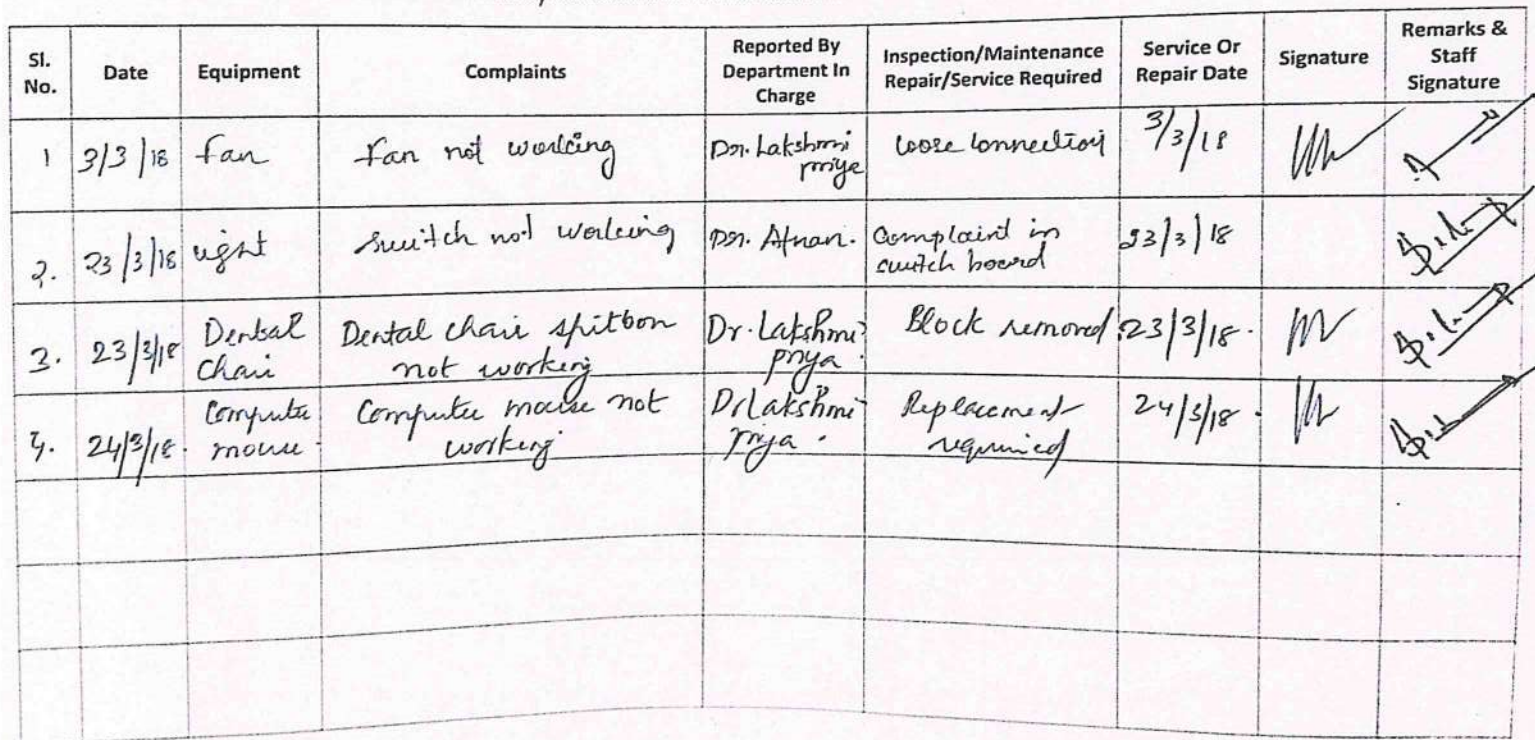 Sl. No. Date Equipment Complaints Reported By Department In Charge Inspection/Maintenance Repair/Service Required Service Or Repair Date Signature Remarks & Staff Signature
1 3/3/18 fan fan not working Dr. Lakshmi priya loose connection 3/3/18
2. 23/3/18 light switch not working Dr. Afnan. Complaint in switch board 23/3/18
3. 23/3/18 Dental chair Dental chair spitbon not working Dr. Lakshmi priya Block removed 23/3/18.
4. 24/3/18. Computer mouse. Computer mouse not working Dr Lakshmi priya. Replacement required 24/3/18.